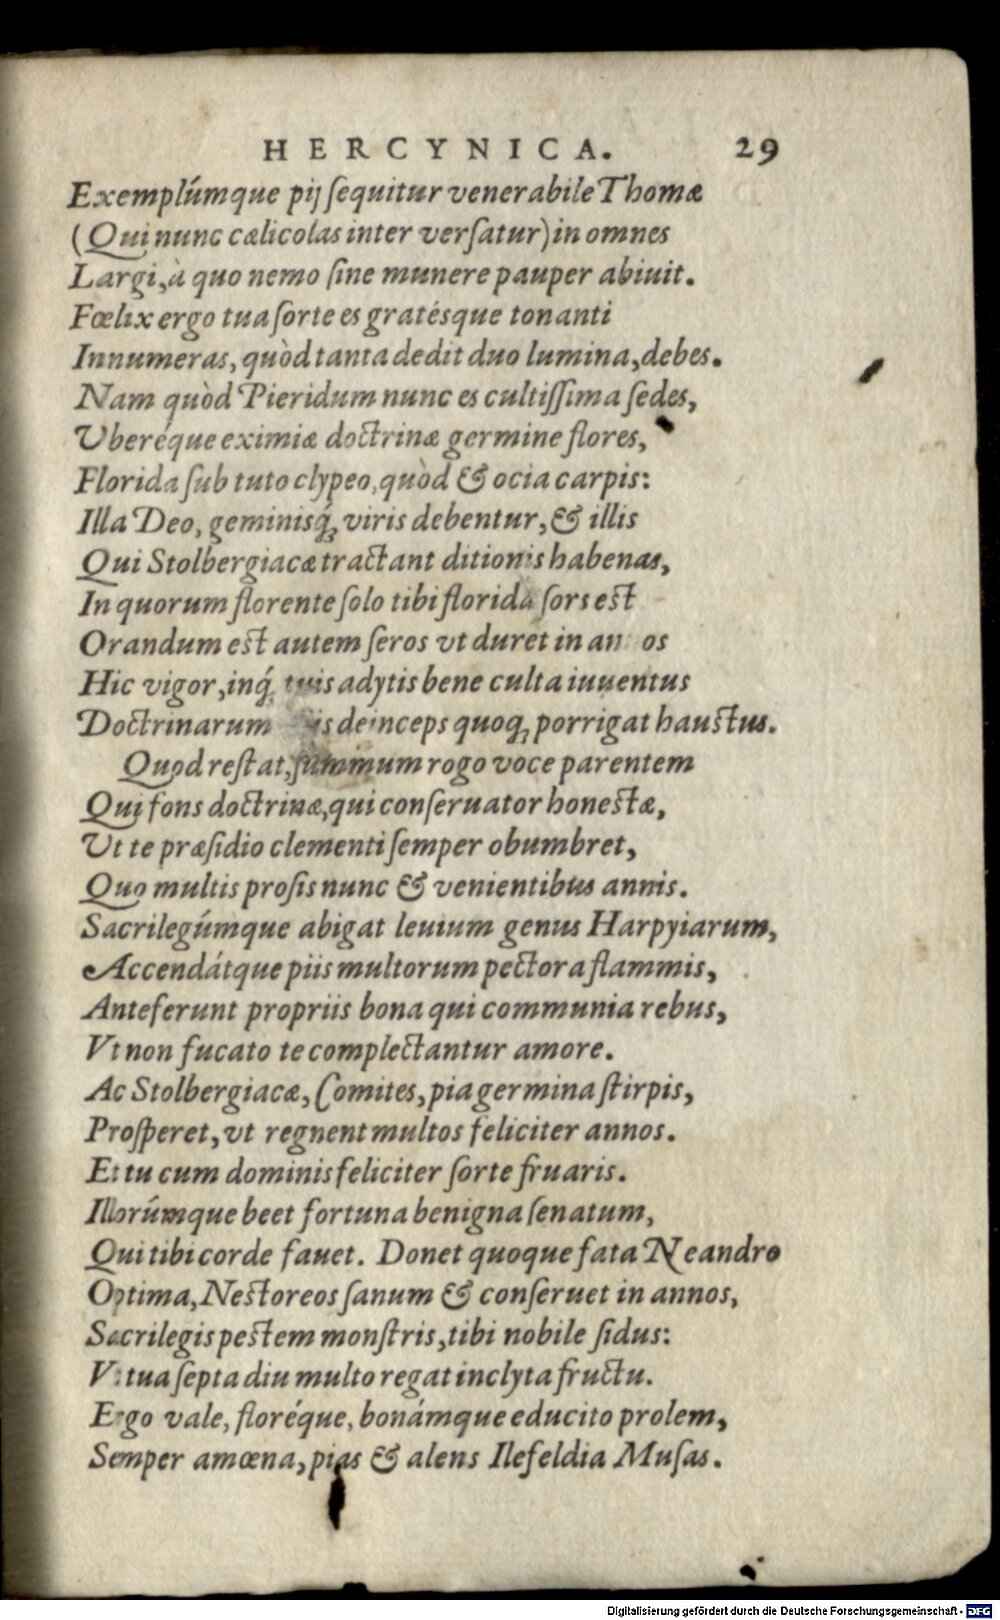 HERCYNICA. 29
Exemplúmque pij ſequitur venerabile Thomæ
(Qui nunc cælicolas inter verſatur) in omnes
Largi, à quo nemo ſine munere pauper abiuit.
Fœlix ergo tua ſorte es gratésque tonanti
Innumeras, quòd tanta dedit duo lumina, debes.
Nam quòd Pieridum nunc es cultiſſima ſedes,
Vberéque eximiæ doctrinæ germine flores,
Florida ſub tuto clypeo, quòd & ocia carpis:
Illa Deo, geminisq́; viris debentur, & illis
Qui Stolbergiacæ tractant ditionis habenas,
In quorum florente ſolo tibi florida ſors est
Orandum est autem ſeros vt duret in an os
Hic vigor, inq́; tuis adytis bene culta iuuentus
Doctrinarum is deinceps quoq; porrigat haustus.
Quod reſtat, ſummum rogo voce parentem
Qui fons doctrinæ, qui conſeruator honestæ,
Vt te præſidio clementi ſemper obumbret,
Quo multis proſis nunc & venientibus annis.
Sacrilegúmque abigat leuium genus Harpyiarum,
Accendátque piis multorum pectora flammis,
Anteferunt propriis bona qui communia rebus,
Vt non fucato te complectantur amore.
Ac Stolbergiacæ, Comites, pia germina ſtirpis,
Proſperet, vt regnent multos feliciter annos.
Et tu cum dominis feliciter ſorte fruaris.
Illorúmque beet fortuna benigna ſenatum,
Qui tibi corde fauet. Donet quoque fata Neandro
Optima, Nestoreos ſanum & conſeruet in annos,
Sacrilegis pestem monſtris, tibi nobile ſidus:
Vt tua ſepta diu multo regat inclyta fructu.
Ergo vale, floréque, bonámque educito prolem,
Semper amœna, pias & alens Ilefeldia Muſas.
Digitalisierung gefördert durch die Deutsche Forschungsgemeinschaft - DFG